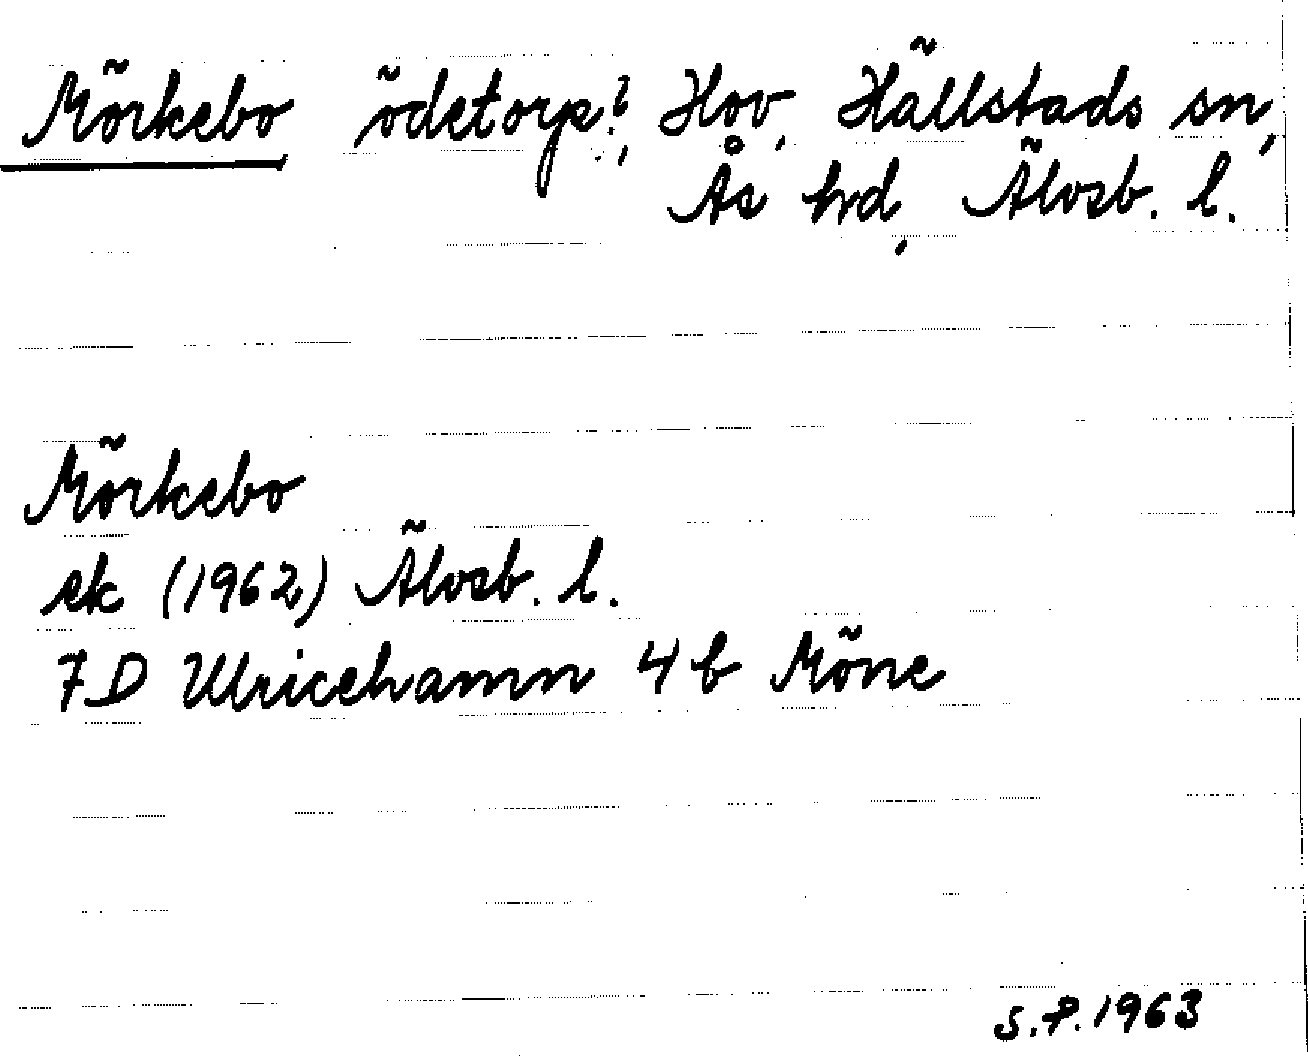 Mörkebo ödetorp?, Hov, Hällstads sn,
Ås hrd, Älvsb. l.
Mörkebo
ek (1962) Älvsb. l.
7D Ulricehamn 4 b Möne
S.P. 1963